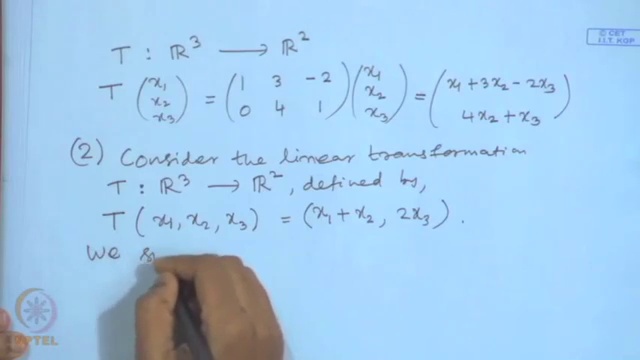 © CET
I.I.T. KGP
T : ℝ³ ⟶ ℝ²
T (x₁ x₂ x₃) = (1 3 -2 / 0 4 1) (x₁ x₂ x₃) = (x₁ + 3x₂ - 2x₃ / 4x₂ + x₃)
(2) Consider the linear transformation
T : ℝ³ ⟶ ℝ², defined by,
T (x₁, x₂, x₃) = (x₁ + x₂, 2x₃).
We
NPTEL